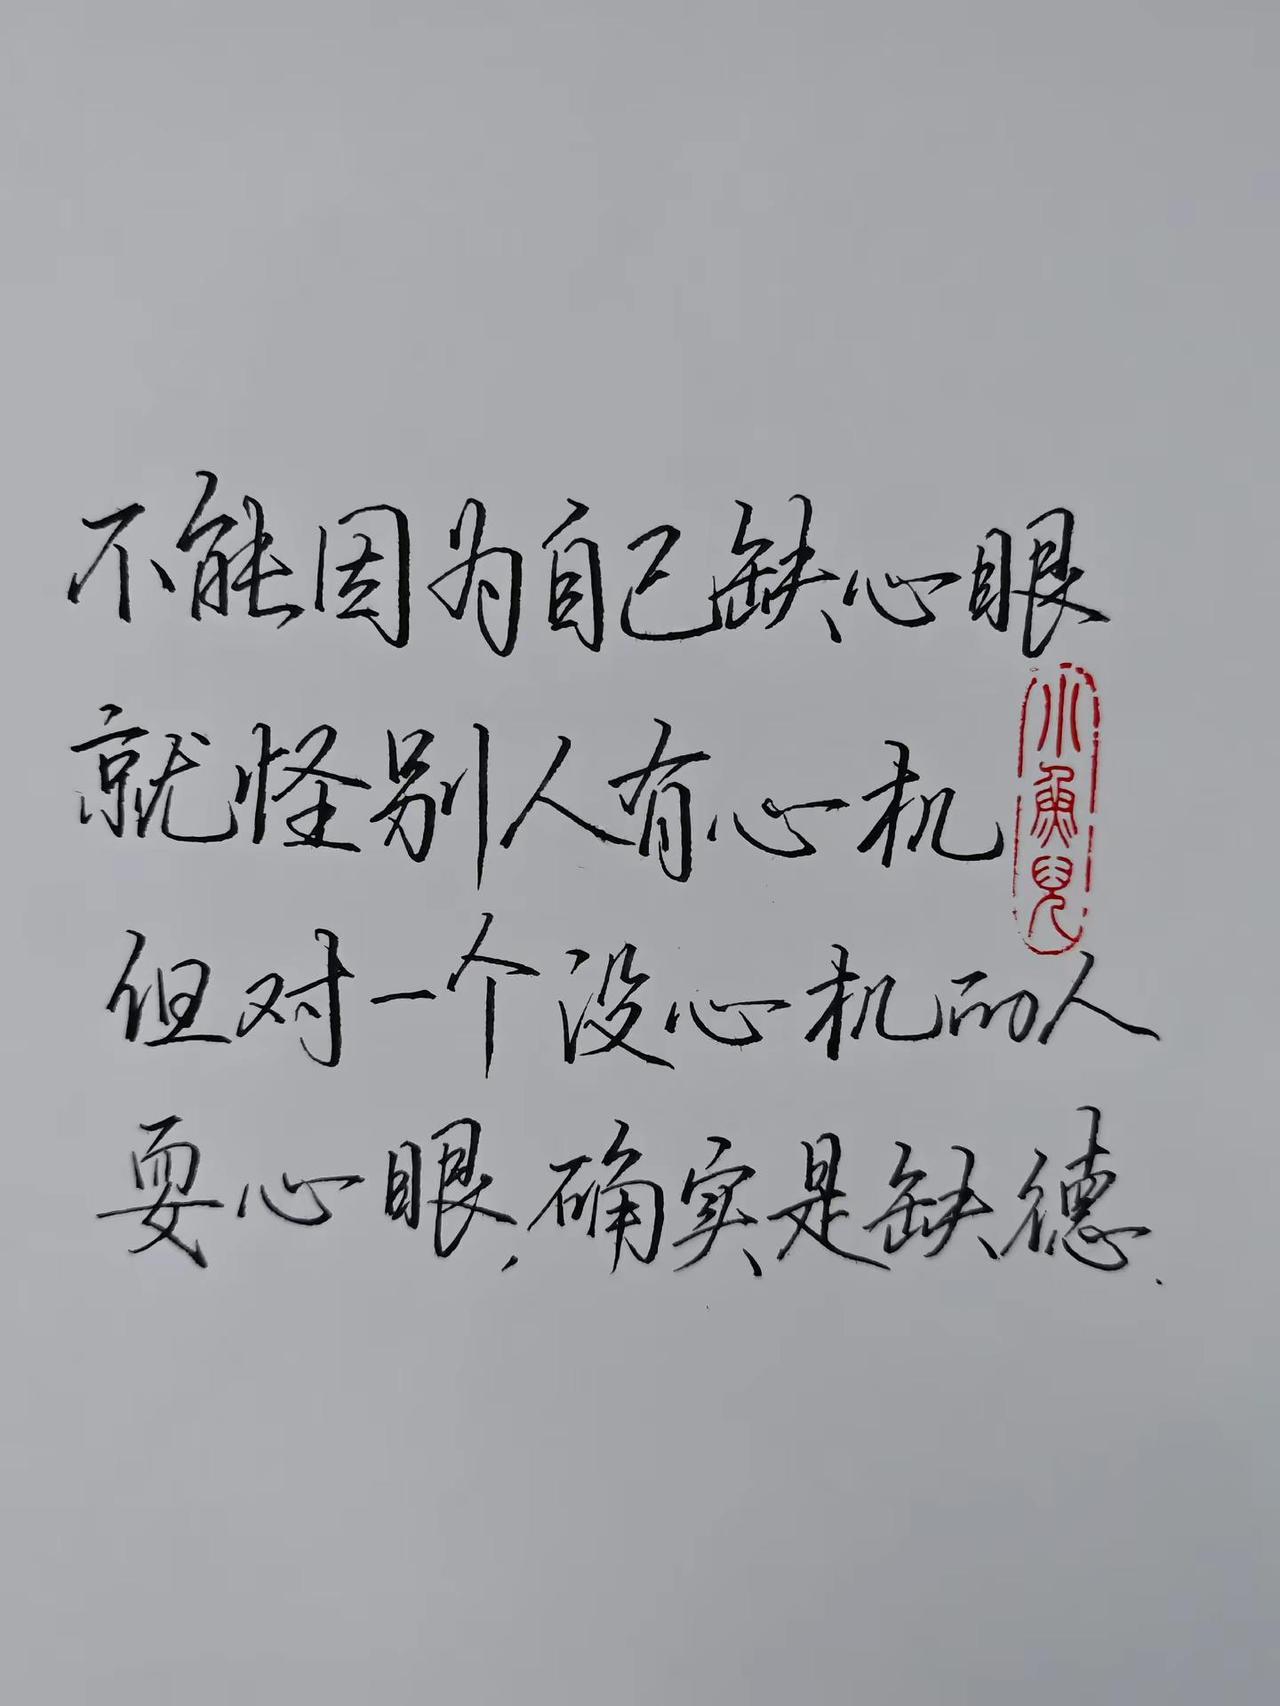 不能因为自己缺心眼
就怪别人有心机
但对一个没心机的人
耍心眼,确实是缺德.
小鱼儿